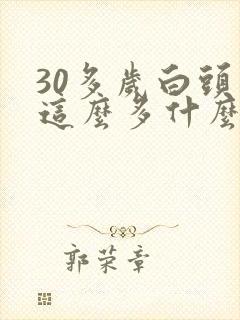 30多歲白頭
這麼多什麼
郭荣章